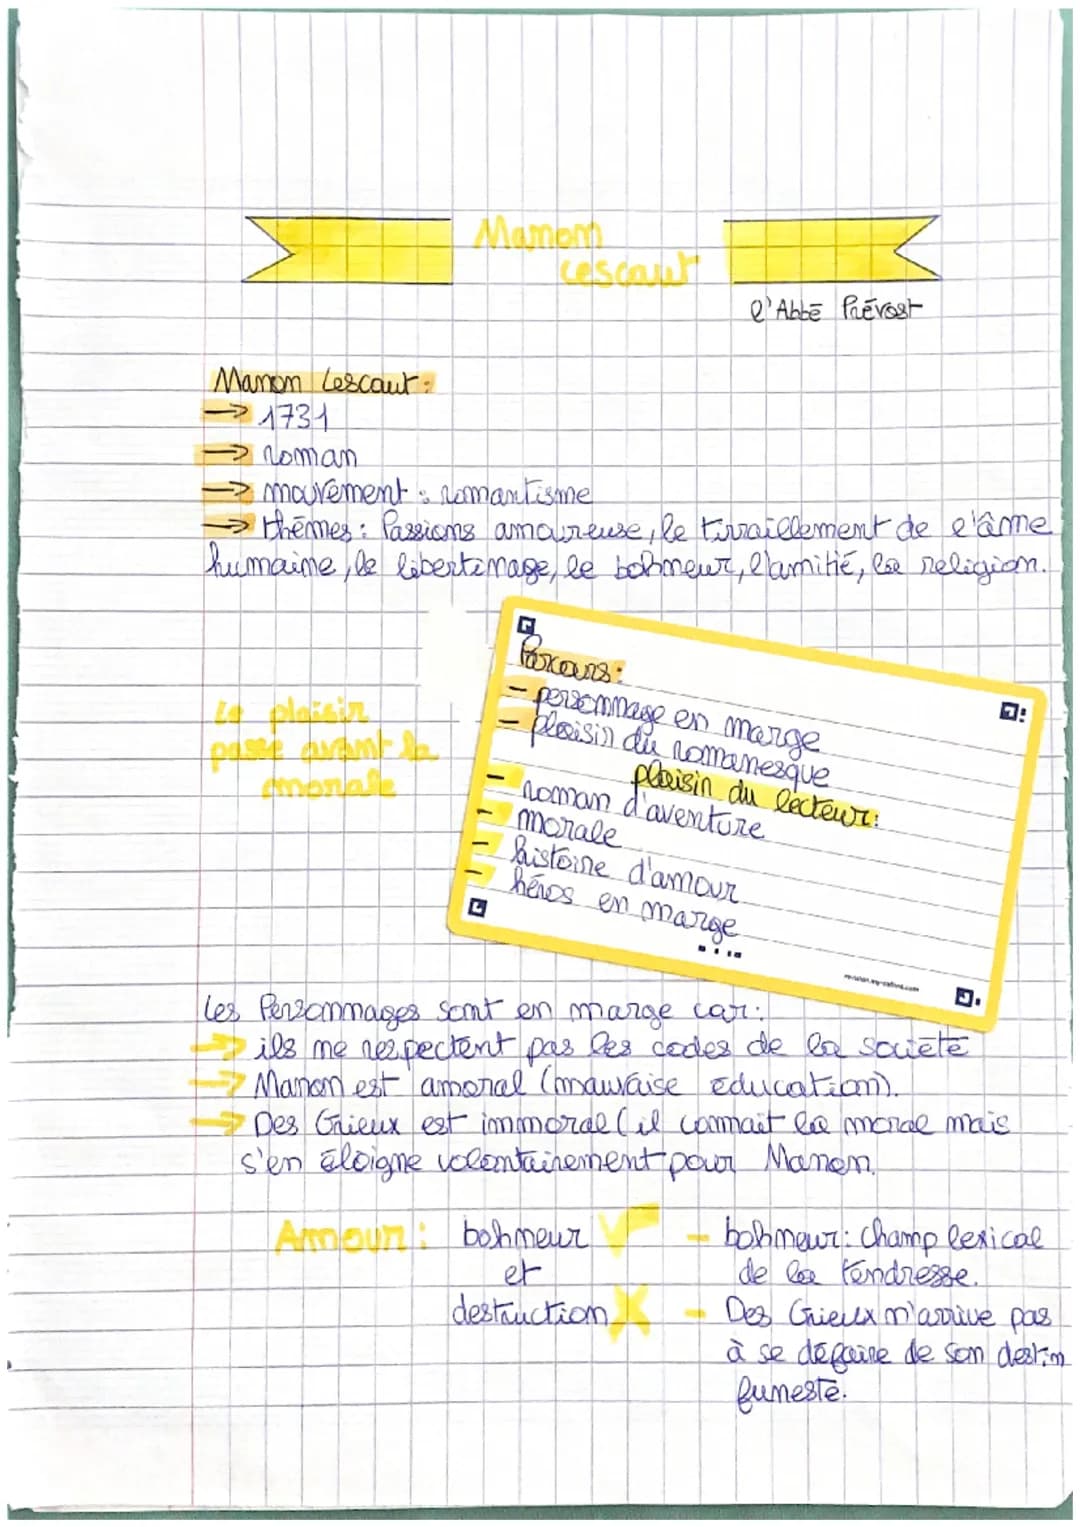 Manon
Lescaut
l'Abbé Prévost
Manon Lescaut :
→ 1731
→ roman
→ mouvement : romantisme
→ thèmes : Passions amoureuse, le tiraillement de l'âme
humaine, le libertinage, le bohneur, l'amitié, la religion.
Parcours :
- personnage en marge
- plaisir du romanesque
plaisir du lecteur :
- roman d'aventure
- morale
- histoire d'amour
- héros en marge
....
Le plaisir
passe avant la
morale
Les Personnages sont en marge car :
→ ils ne respectent pas les codes de la société
→ Manon est amoral (mauvaise éducation).
→ Des Grieux est immoral (il connait la morale mais
s'en éloigne volontairement pour Manon.
Amour : bohneur
et
destruction
- bohneur : champ lexical
de la tendresse.
- Des Grieux n'arrive pas
à se défaire de son destin
funeste.